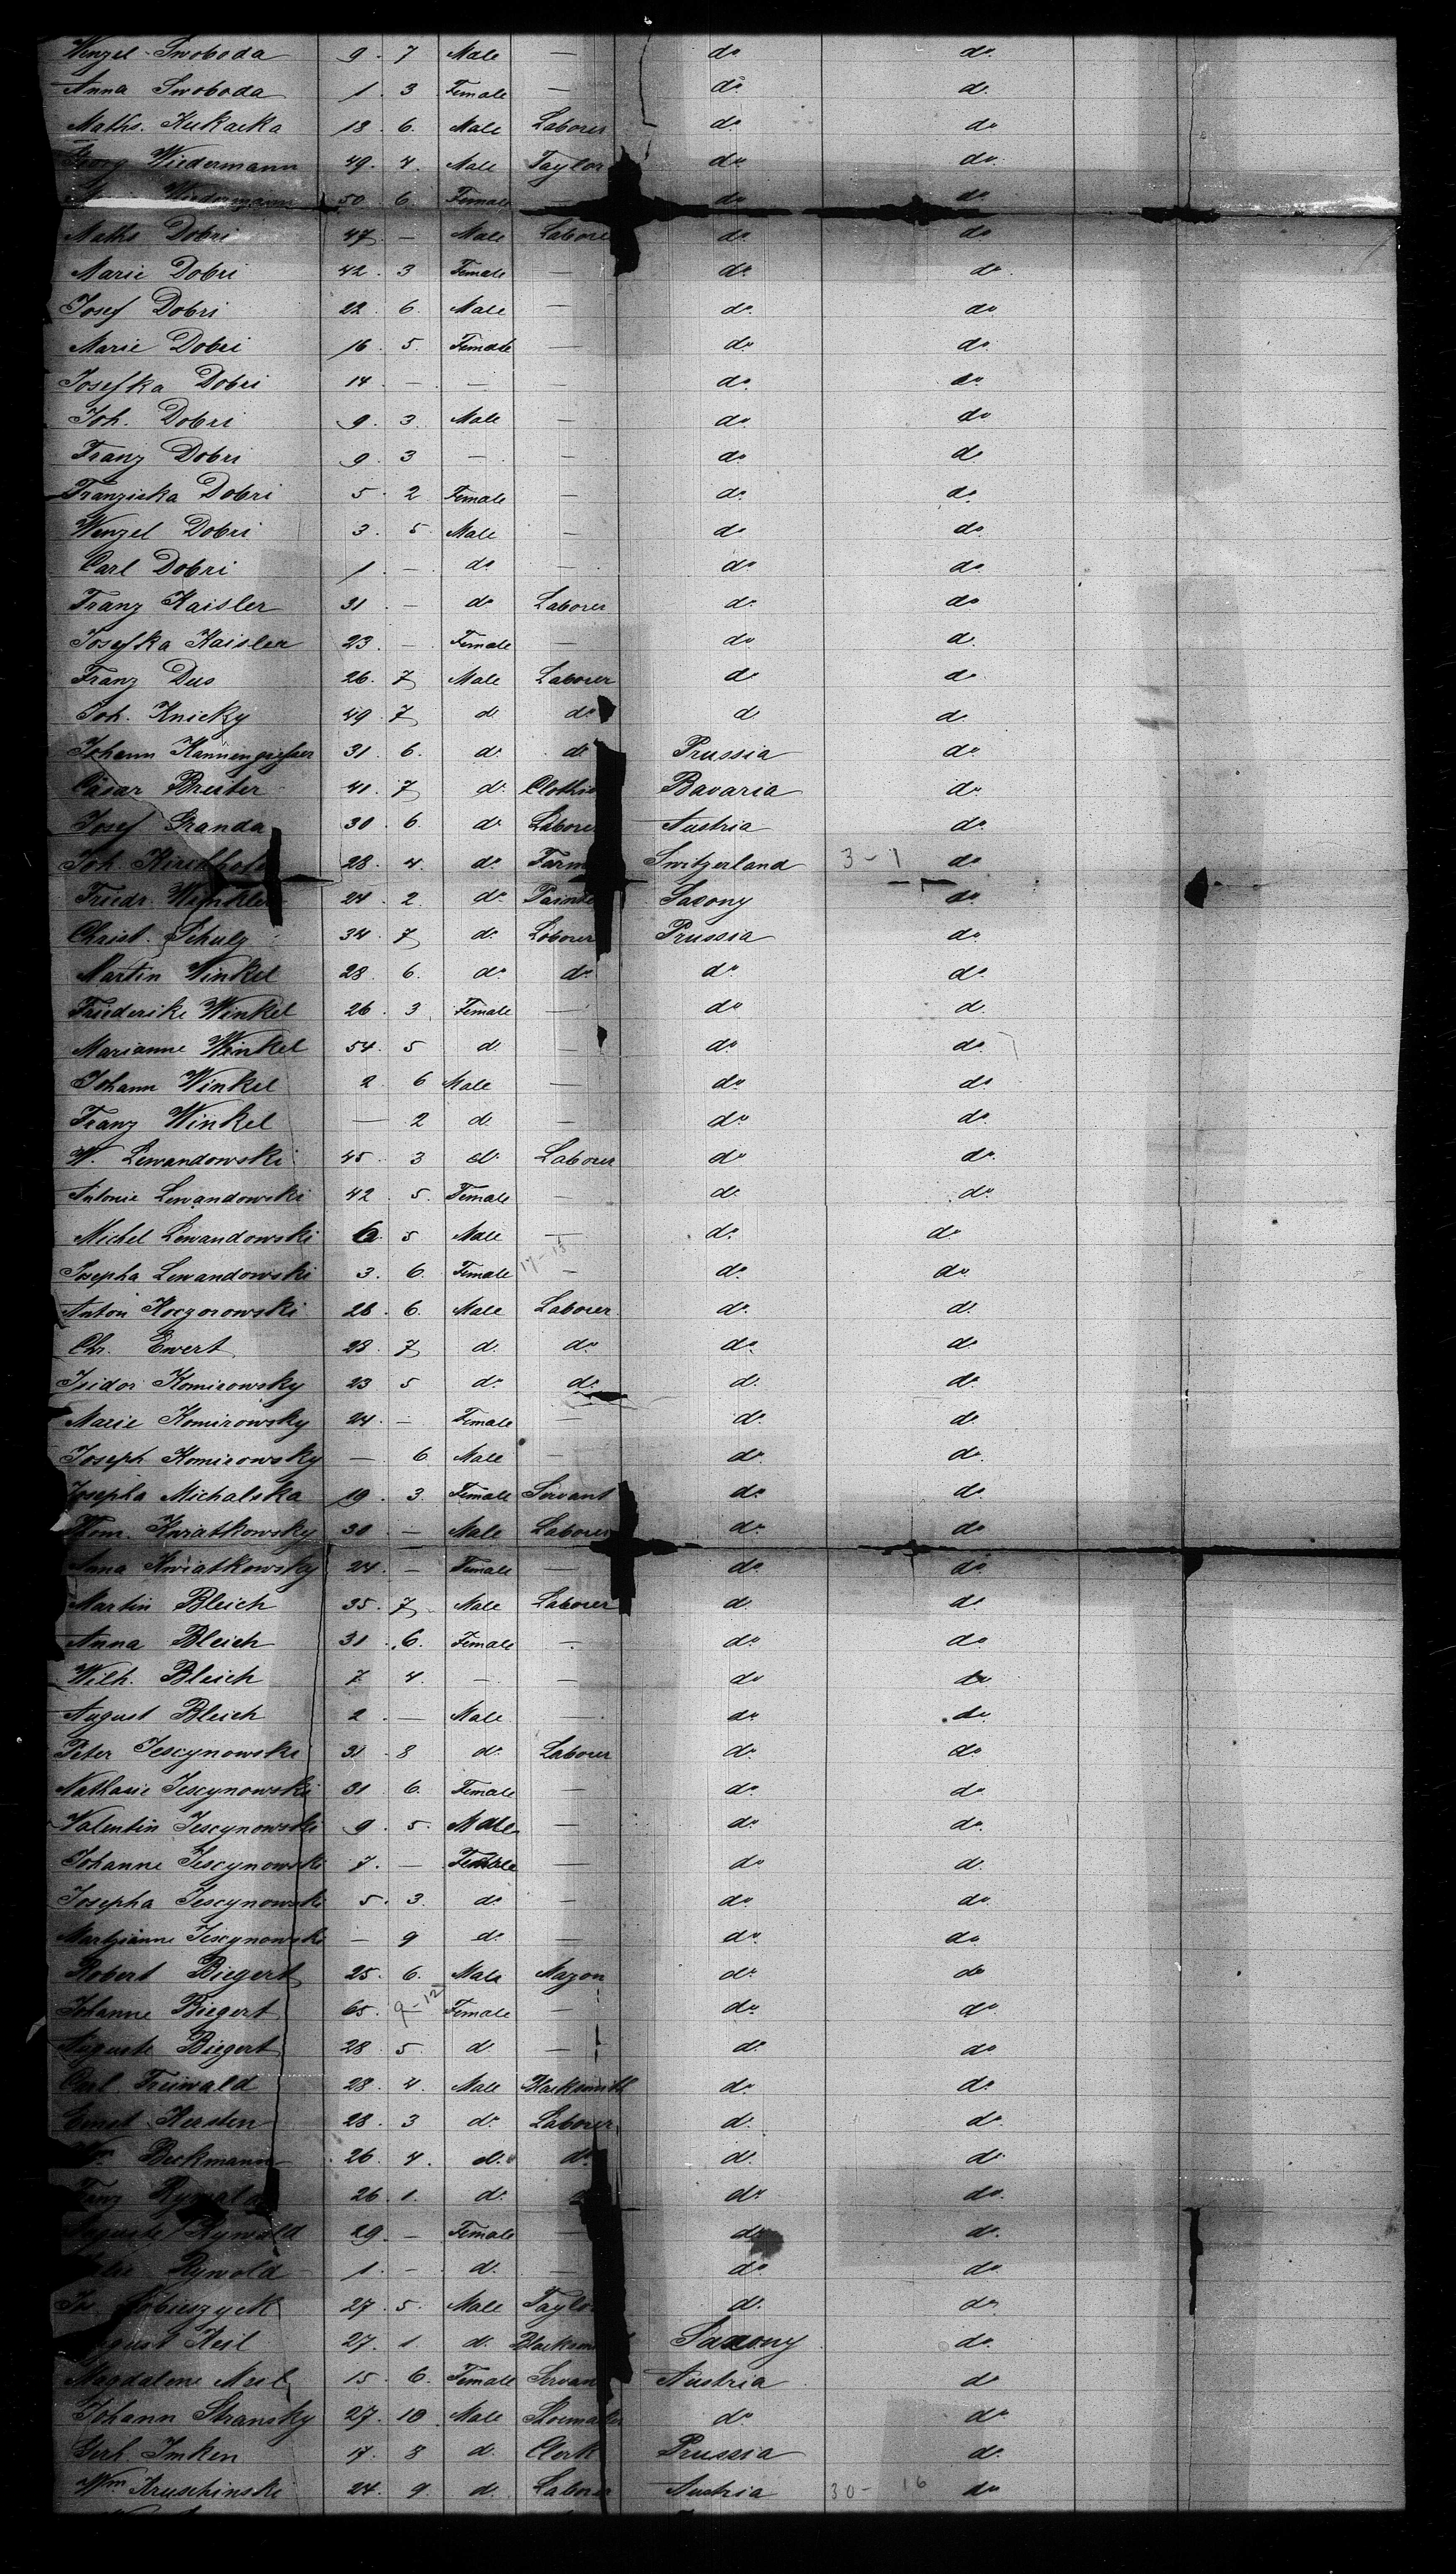 Wenzel Swoboda 9. 7 Male — do do.
Anna Swoboda 1. 3 Female — do. d.
Maths. Kukacka 18. 6. Male Laborer do. do
Georg Wiedermann 49. 4. Male Taylor do. do.
Wiedermann 50. 6. Female do do.
Maths Dobri 47. — Male Labore do. do
Marie Dobri 42. 3 Female — do. do.
Josef Dobri 22. 6. Male — do. do
Marie Dobri 16. 5. Female — do. do.
Josefka Dobri 14 — — — do. do.
Joh. Dobri 9. 3. Male — do. do
Franz Dobri 9. 3 — — do. do
Franziska Dobri 5. 2 Female — do. do.
Wenzel Dobri 3. 5. Male — do do.
Carl Dobri 1. — do — do. do.
Franz Kaisler 31. — do Laborer d. do.
Josefka Kaisler 23. — Female — do d.
Franz Dus 26. 7 Male Laborer do do
Joh. Knicky 49. 7 d. do d d.
Johann Kannengiesser 31. 6. d. do Prussia do.
Cäsar Breiter 41. 7 d. Clothi Bavaria do.
Josef Granda 30. 6. d. Labore Austria do.
Joh. Kirchhof 28. 4. do. Farm Switzerland 3-1 do.
Friedr. Winkler 24. 2. do. Painte Saxony do.
Christ. Schulz 34. 7 d. Laborer Prussia do.
Martin Winkel 28. 6. do. do. do. do.
Friederike Winkel 26. 3. Female — do d.
Marianne Winkel 54. 5 d — do. do.
Johann Winkel 2. 6 Male — do. do
Franz Winkel — 2 d. — do. do.
W. Lewandowski 45. 3 d. Laborer do do.
Antonie Lewandowski 42. 5. Female — d. do.
Michel Lewandowski 6. 5 Male — do. do.
17-13
Josepha Lewandowski 3. 6. Female — do. do.
Anton Koczorowski 26. 6. Male Laborer. do. d.
Chr. Ewert 28. 7 d. do. do. d.
Isidor Komirowsky 23 5 do. do. d. d.
Marie Komirowsky 24. — Female — d. d.
Joseph Komirowsky — 6 Male — do. d.
Josepha Michalska 19. 3. Female Servant do. do.
Thom. Kwiatkowsky 30. — Male Laborer do. do
Anna Kwiatkowsky 24. — Female — do. do.
Martin Bleich 35. 7 Male Laborer d. d.
Anna Bleich 31. 6. Female — do do
Wilh. Bleich 7. 4. — — do do
August Bleich 2. — Male — do. do.
Peter Jescynowski 31 8 d. Laborer do. do
Nathalie Jescynowski 31. 6. Female — do. do
Valentin Jescynowski 9. 5. Male — do. do.
Johanne Jescynowski 7. — Female — do d.
Josepha Jescynowski 5. 3. do. — do. do.
Martzianne Jescynowski — 9 do. — do. do.
Robert Biegert 25. 6. Male Mazon do. do
9-12
Johanne Biegert 65. — Female — do. do.
Auguste Biegert 28. 5. d. — do. do
Carl Freiwald 28. 4. Male Blacksmith do. do.
Ernst Kersten 28. 3 do. Laborer. d. do.
Wm Beckmann 26. 4. d. do. d. do.
Franz Rywald 26. 1. d. do. do.
Auguste Rywald 29. — Female — do d.
Rywold 1. — d. — do. do.
27. 5. Male Taylo d. do.
August Keil 27. 1. d. Blacksm Saxony do.
Magdalene 15. 6. Female Servan Austria d
Johann Stransky 27. 10 Male Shoemaker do do.
Gerh. Imken 17. 8 d. Clerk Prussia do.
Wm Kruschinski 24. 9. d. Labore Austria 30-16 do.